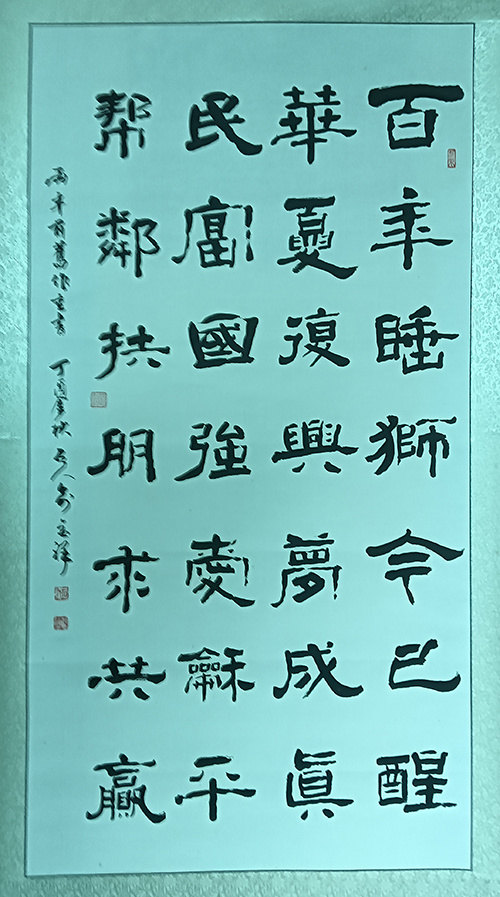 百年睡獅今已醒
華夏復興夢成眞
民富國強愛龢平
帮鄰扶朋求共贏
兩年前舊作重書 丁酉金秋